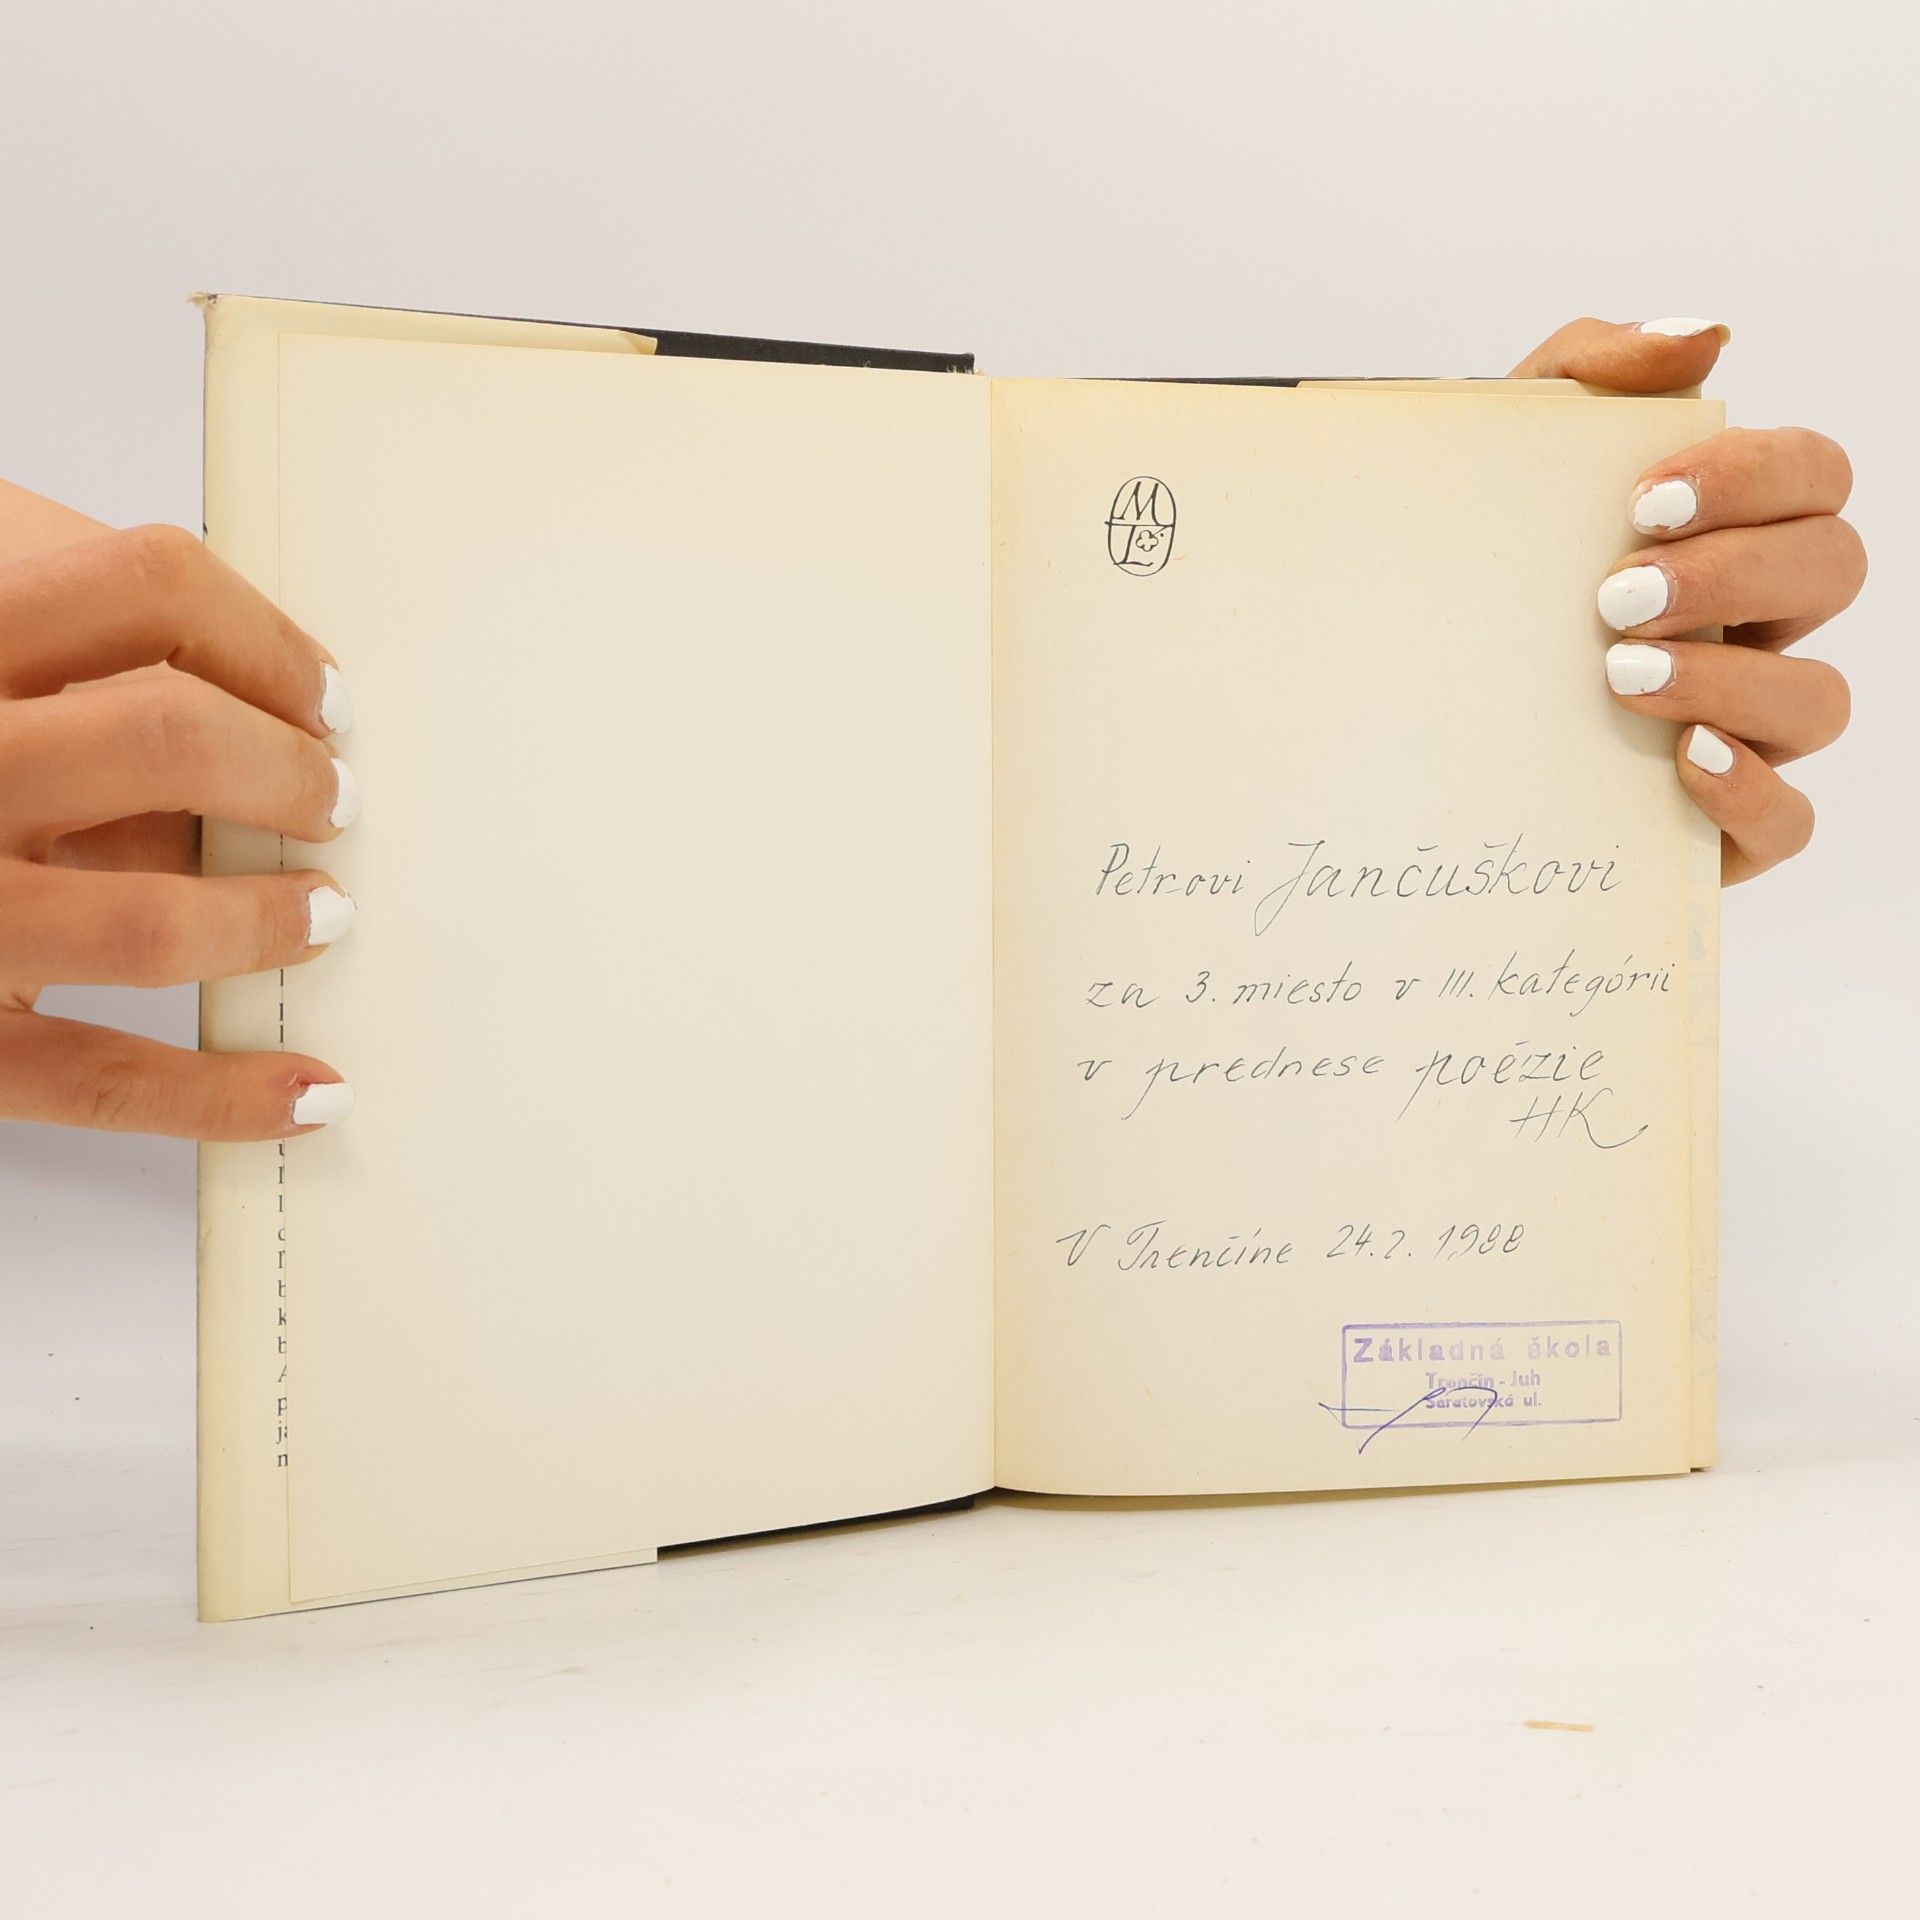 M
L
Petrovi Jančuškovi
za 3. miesto v III. kategórii
v prednese poézie
HK
V Trenčíne 24.2. 1988
Základná škola
Trenčín - Juh
Saratovská ul.